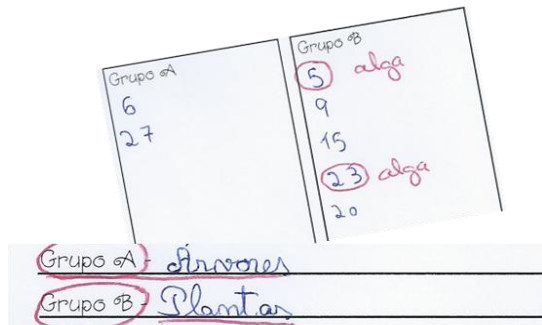 Grupo A
6
27
Grupo B
5 alga
9
15
23 alga
20
Grupo A - Árvores
Grupo B - Plantas